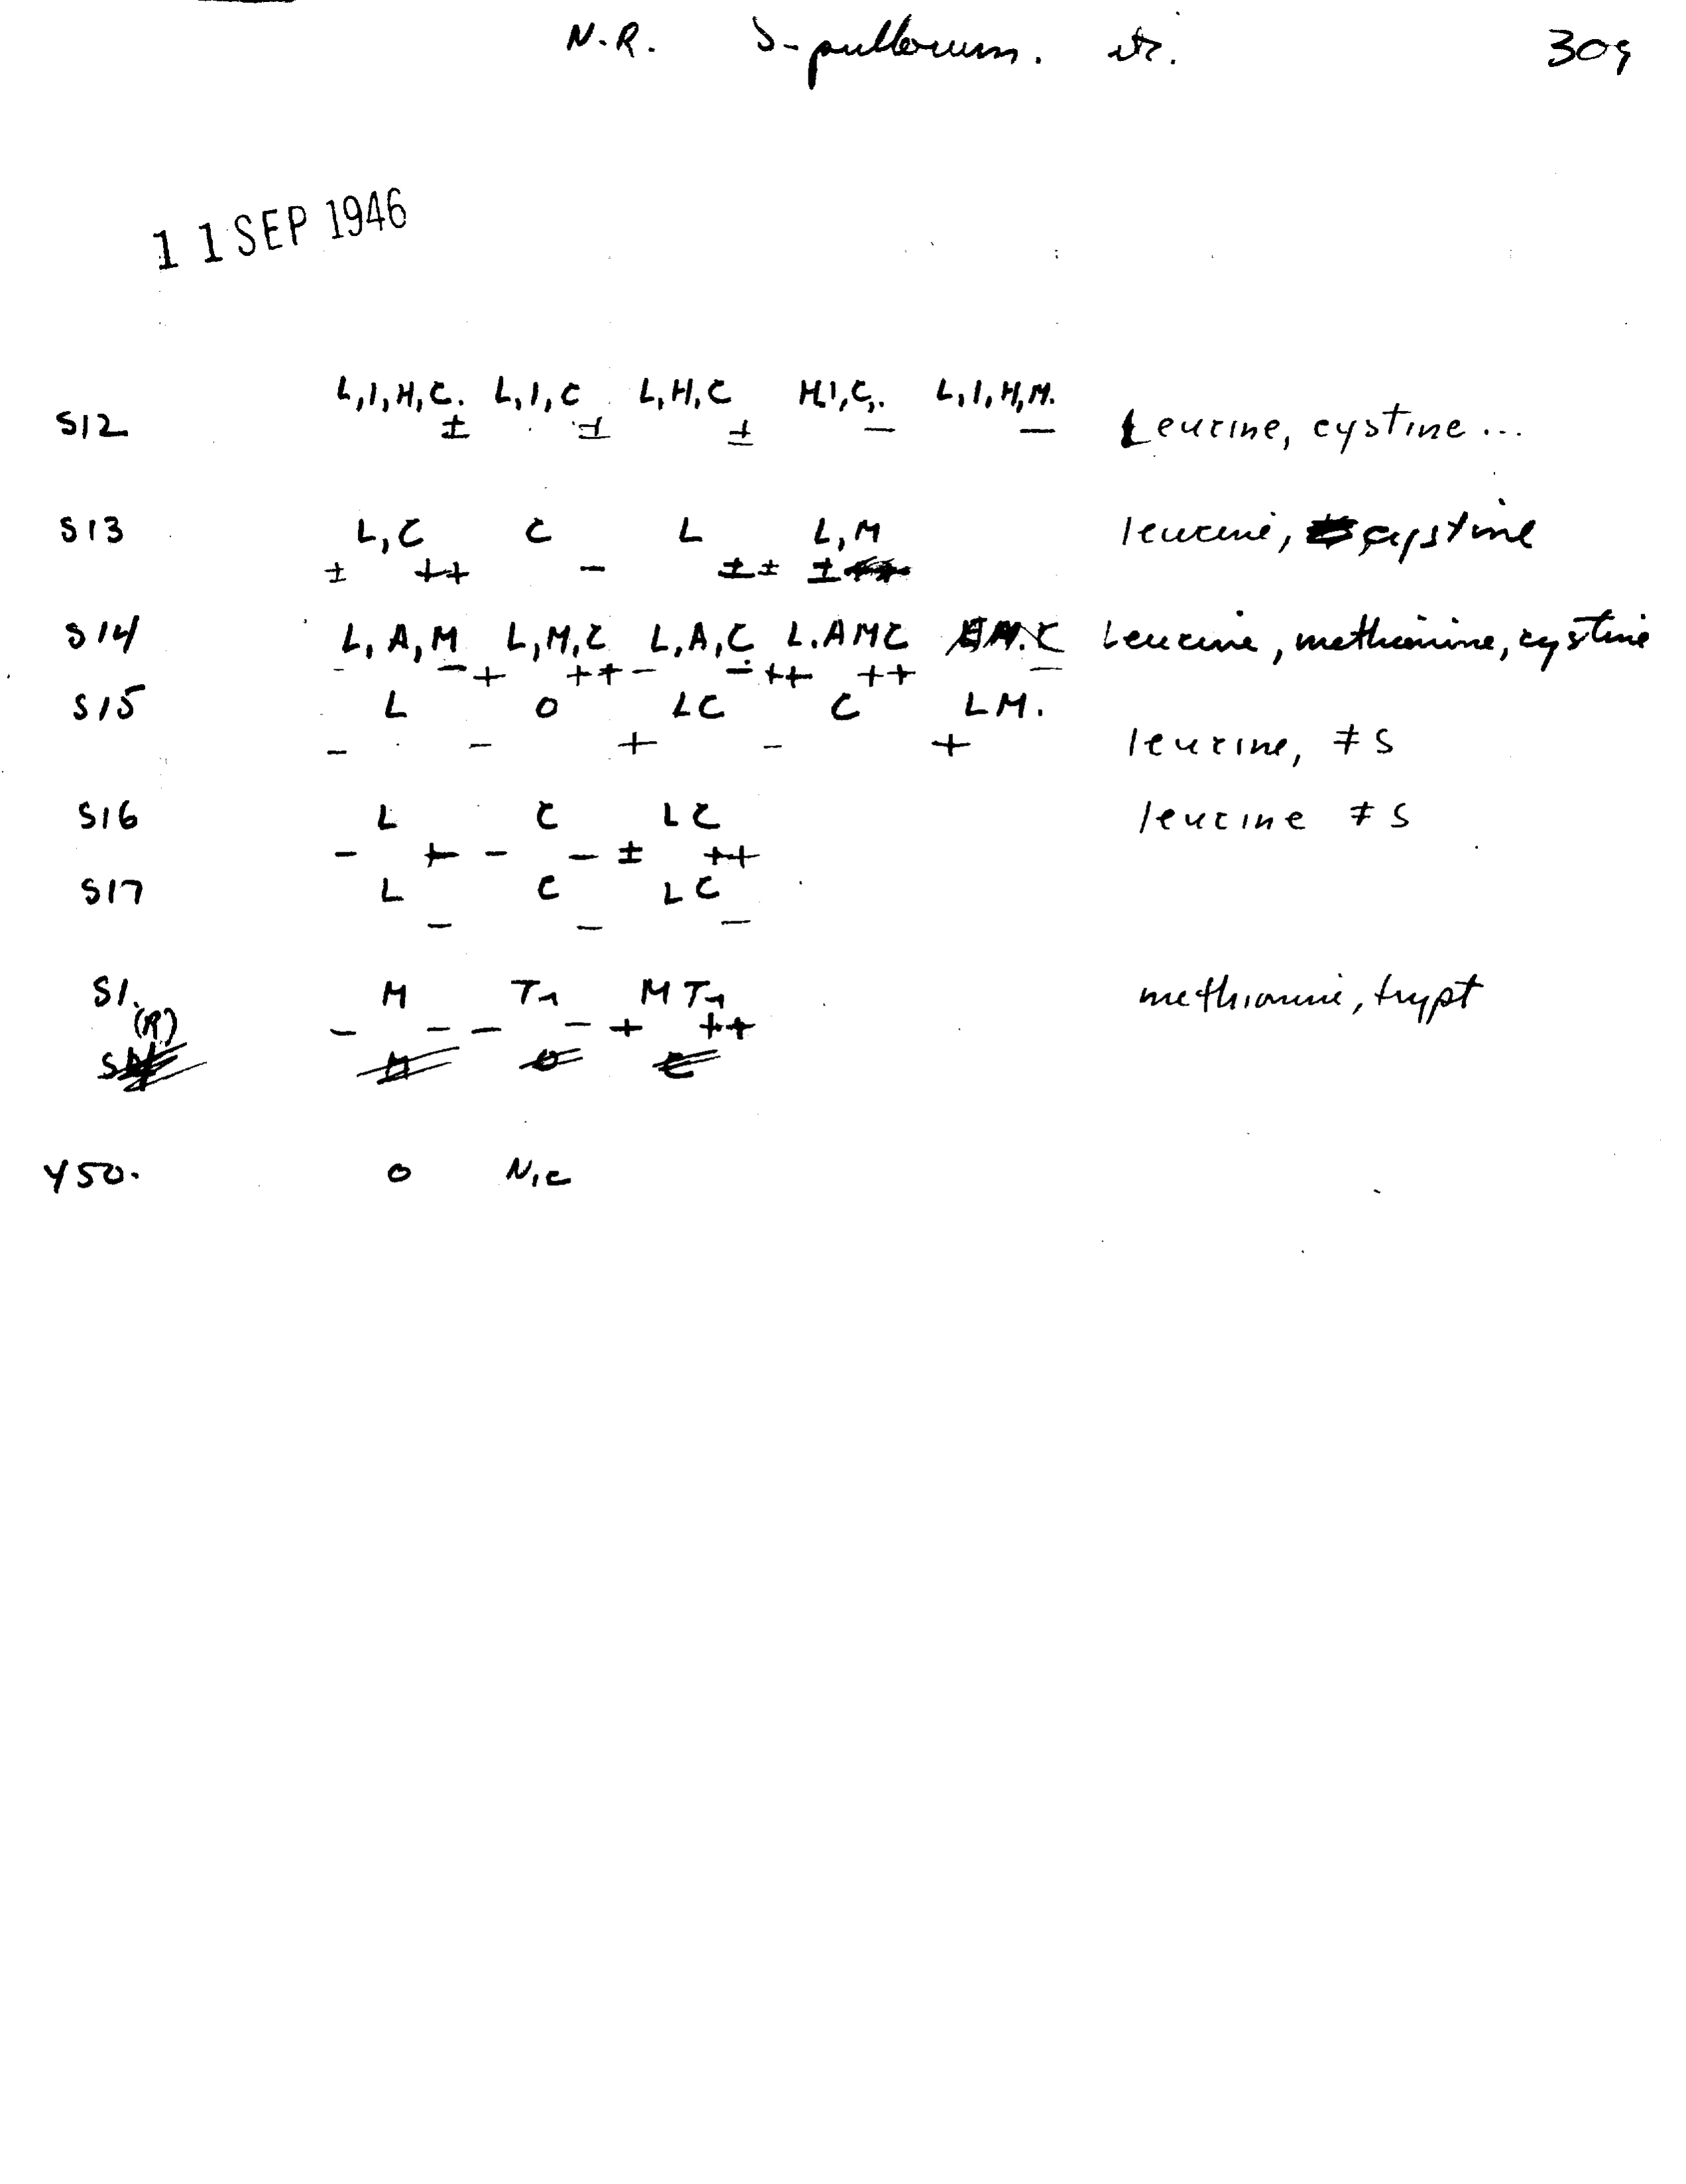 N.R. S-pullorum. etc. 309
11 SEP 1946
L,I,H,C. L,I,C L,H,C H,I,C,. L,I,H,M.
S12 ± ± ± — — Leucine, cystine ...
S13 L,C C L L,M leucine, cystine
± ++ − ± ± ±
S14 L,A,M L,M,C L,A,C L.AMC Leucine, methionine, cystine
− − + ++ − − ++ ++ −
S15 L O LC C LM.
− − + − + leucine, ≠ S
S16 L C LC leucine ≠ S
− + − − ± ++
S17 L C LC
− − −
S1. M Tr M Tr methionine, trypt
(R) − − − − + ++
Y50. O Nic